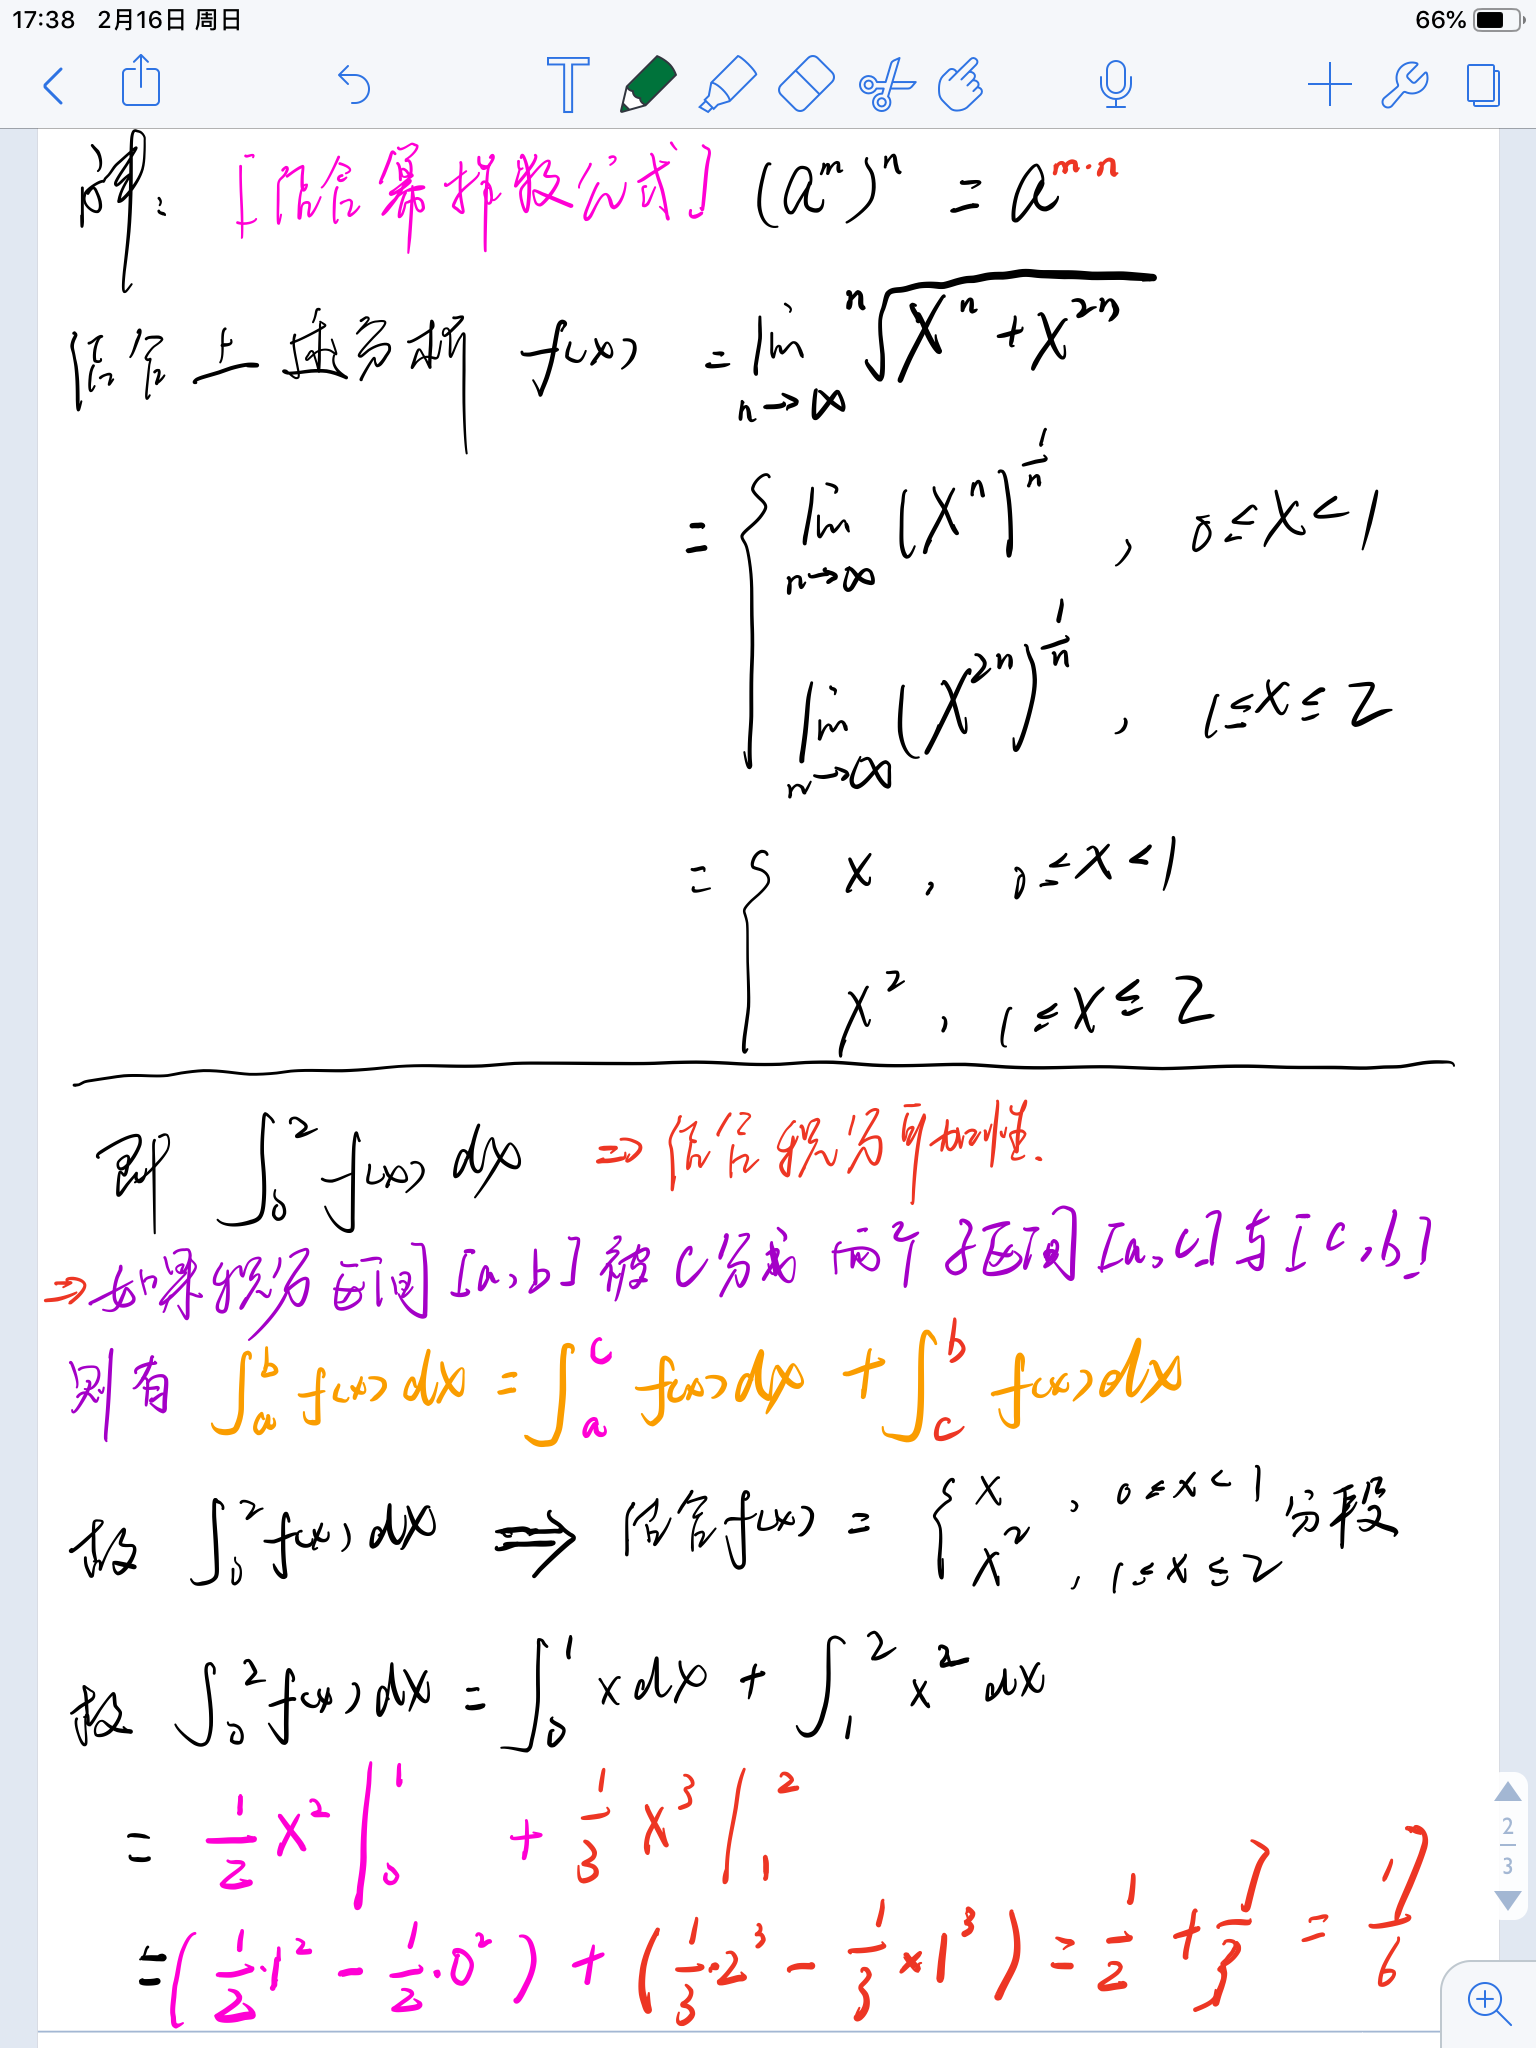 17:38 2月16日 周日 66%
T
解: [结合幂指数公式] (a^m)^n = a^{m·n}
结合上述分析 f(x) = lim_{n→∞} ⁿ√(x^n + x^{2n})
= { lim_{n→∞} (x^n)^{1/n} , 0≤x<1
lim_{n→∞} (x^{2n})^{1/n} , 1≤x≤2
= { x , 0≤x<1
x^2 , 1≤x≤2
即 ∫_0^2 f(x) dx ⇒ 结合积分可加性.
⇒ 如果积分区间[a,b]被C分成两个子区间[a,c]与[c,b]
则有 ∫_a^b f(x)dx = ∫_a^c f(x)dx + ∫_c^b f(x)dx
故 ∫_0^2 f(x)dx ⇒ 结合f(x) = { x , 0≤x<1 分段
x^2 , 1≤x≤2
故 ∫_0^2 f(x)dx = ∫_0^1 xdx + ∫_1^2 x^2 dx
= 1/2 x^2 |_0^1 + 1/3 x^3 |_1^2
= (1/2·1^2 - 1/2·0^2) + (1/3·2^3 - 1/3×1^3) = 1/2 + 7/3 = 17/6
2
3